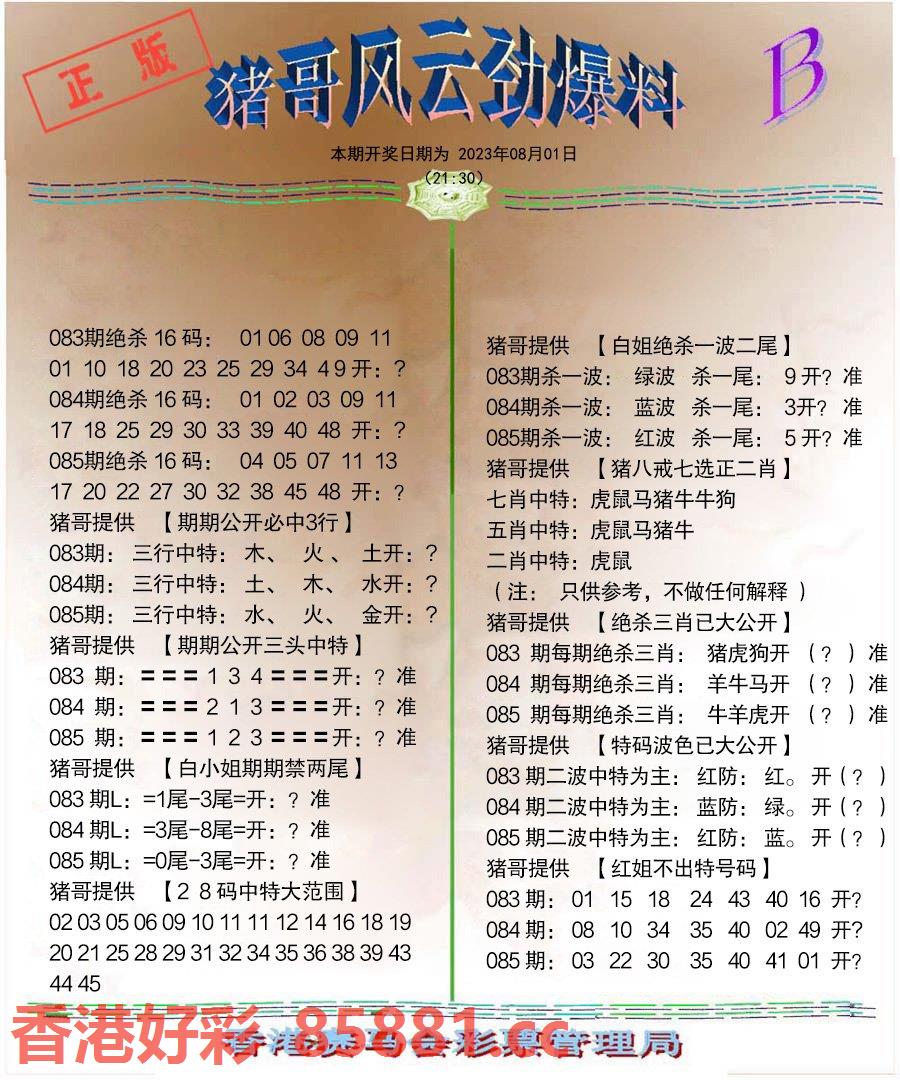 正版
猪哥风云劲爆料
B
本期开奖日期为 2023年08月01日
(21:30)
083期绝杀16码： 01 06 08 09 11
01 10 18 20 23 25 29 34 49开：？
084期绝杀16码： 01 02 03 09 11
17 18 25 29 30 33 39 40 48 开：？
085期绝杀16码： 04 05 07 11 13
17 20 22 27 30 32 38 45 48 开：？
猪哥提供 【期期公开必中3行】
083期： 三行中特： 木、 火、 土开：？
084期： 三行中特： 土、 木、 水开：？
085期： 三行中特： 水、 火、 金开：？
猪哥提供 【期期公开三头中特】
083 期：＝＝＝1 3 4＝＝＝开：？准
084 期：＝＝＝2 1 3＝＝＝开：？准
085 期：＝＝＝1 2 3＝＝＝开：？准
猪哥提供 【白小姐期期禁两尾】
083期L：=1尾-3尾=开：？准
084期L：=3尾-8尾=开：？准
085期L：=0尾-3尾=开：？准
猪哥提供 【28码中特大范围】
02 03 05 06 09 10 11 11 12 14 16 18 19
20 21 25 28 29 31 32 34 35 36 38 39 43
44 45
猪哥提供 【白姐绝杀一波二尾】
083期杀一波： 绿波 杀一尾： 9开？准
084期杀一波： 蓝波 杀一尾： 3开？准
085期杀一波： 红波 杀一尾： 5开？准
猪哥提供 【猪八戒七选正二肖】
七肖中特：虎鼠马猪牛牛狗
五肖中特：虎鼠马猪牛
二肖中特：虎鼠
（注： 只供参考，不做任何解释 ）
猪哥提供 【绝杀三肖已大公开】
083 期每期绝杀三肖： 猪虎狗开 （？）准
084 期每期绝杀三肖： 羊牛马开 （？）准
085 期每期绝杀三肖： 牛羊虎开 （？）准
猪哥提供 【特码波色已大公开】
083期二波中特为主：红防：红。开（？）
084期二波中特为主：蓝防：绿。开（？）
085期二波中特为主：红防：蓝。开（？）
猪哥提供 【红姐不出特号码】
083期：01 15 18 24 43 40 16 开？
084期：08 10 34 35 40 02 49 开？
085期：03 22 30 35 40 41 01 开？
香港好彩 85881.cc
香港赛马会彩票管理局